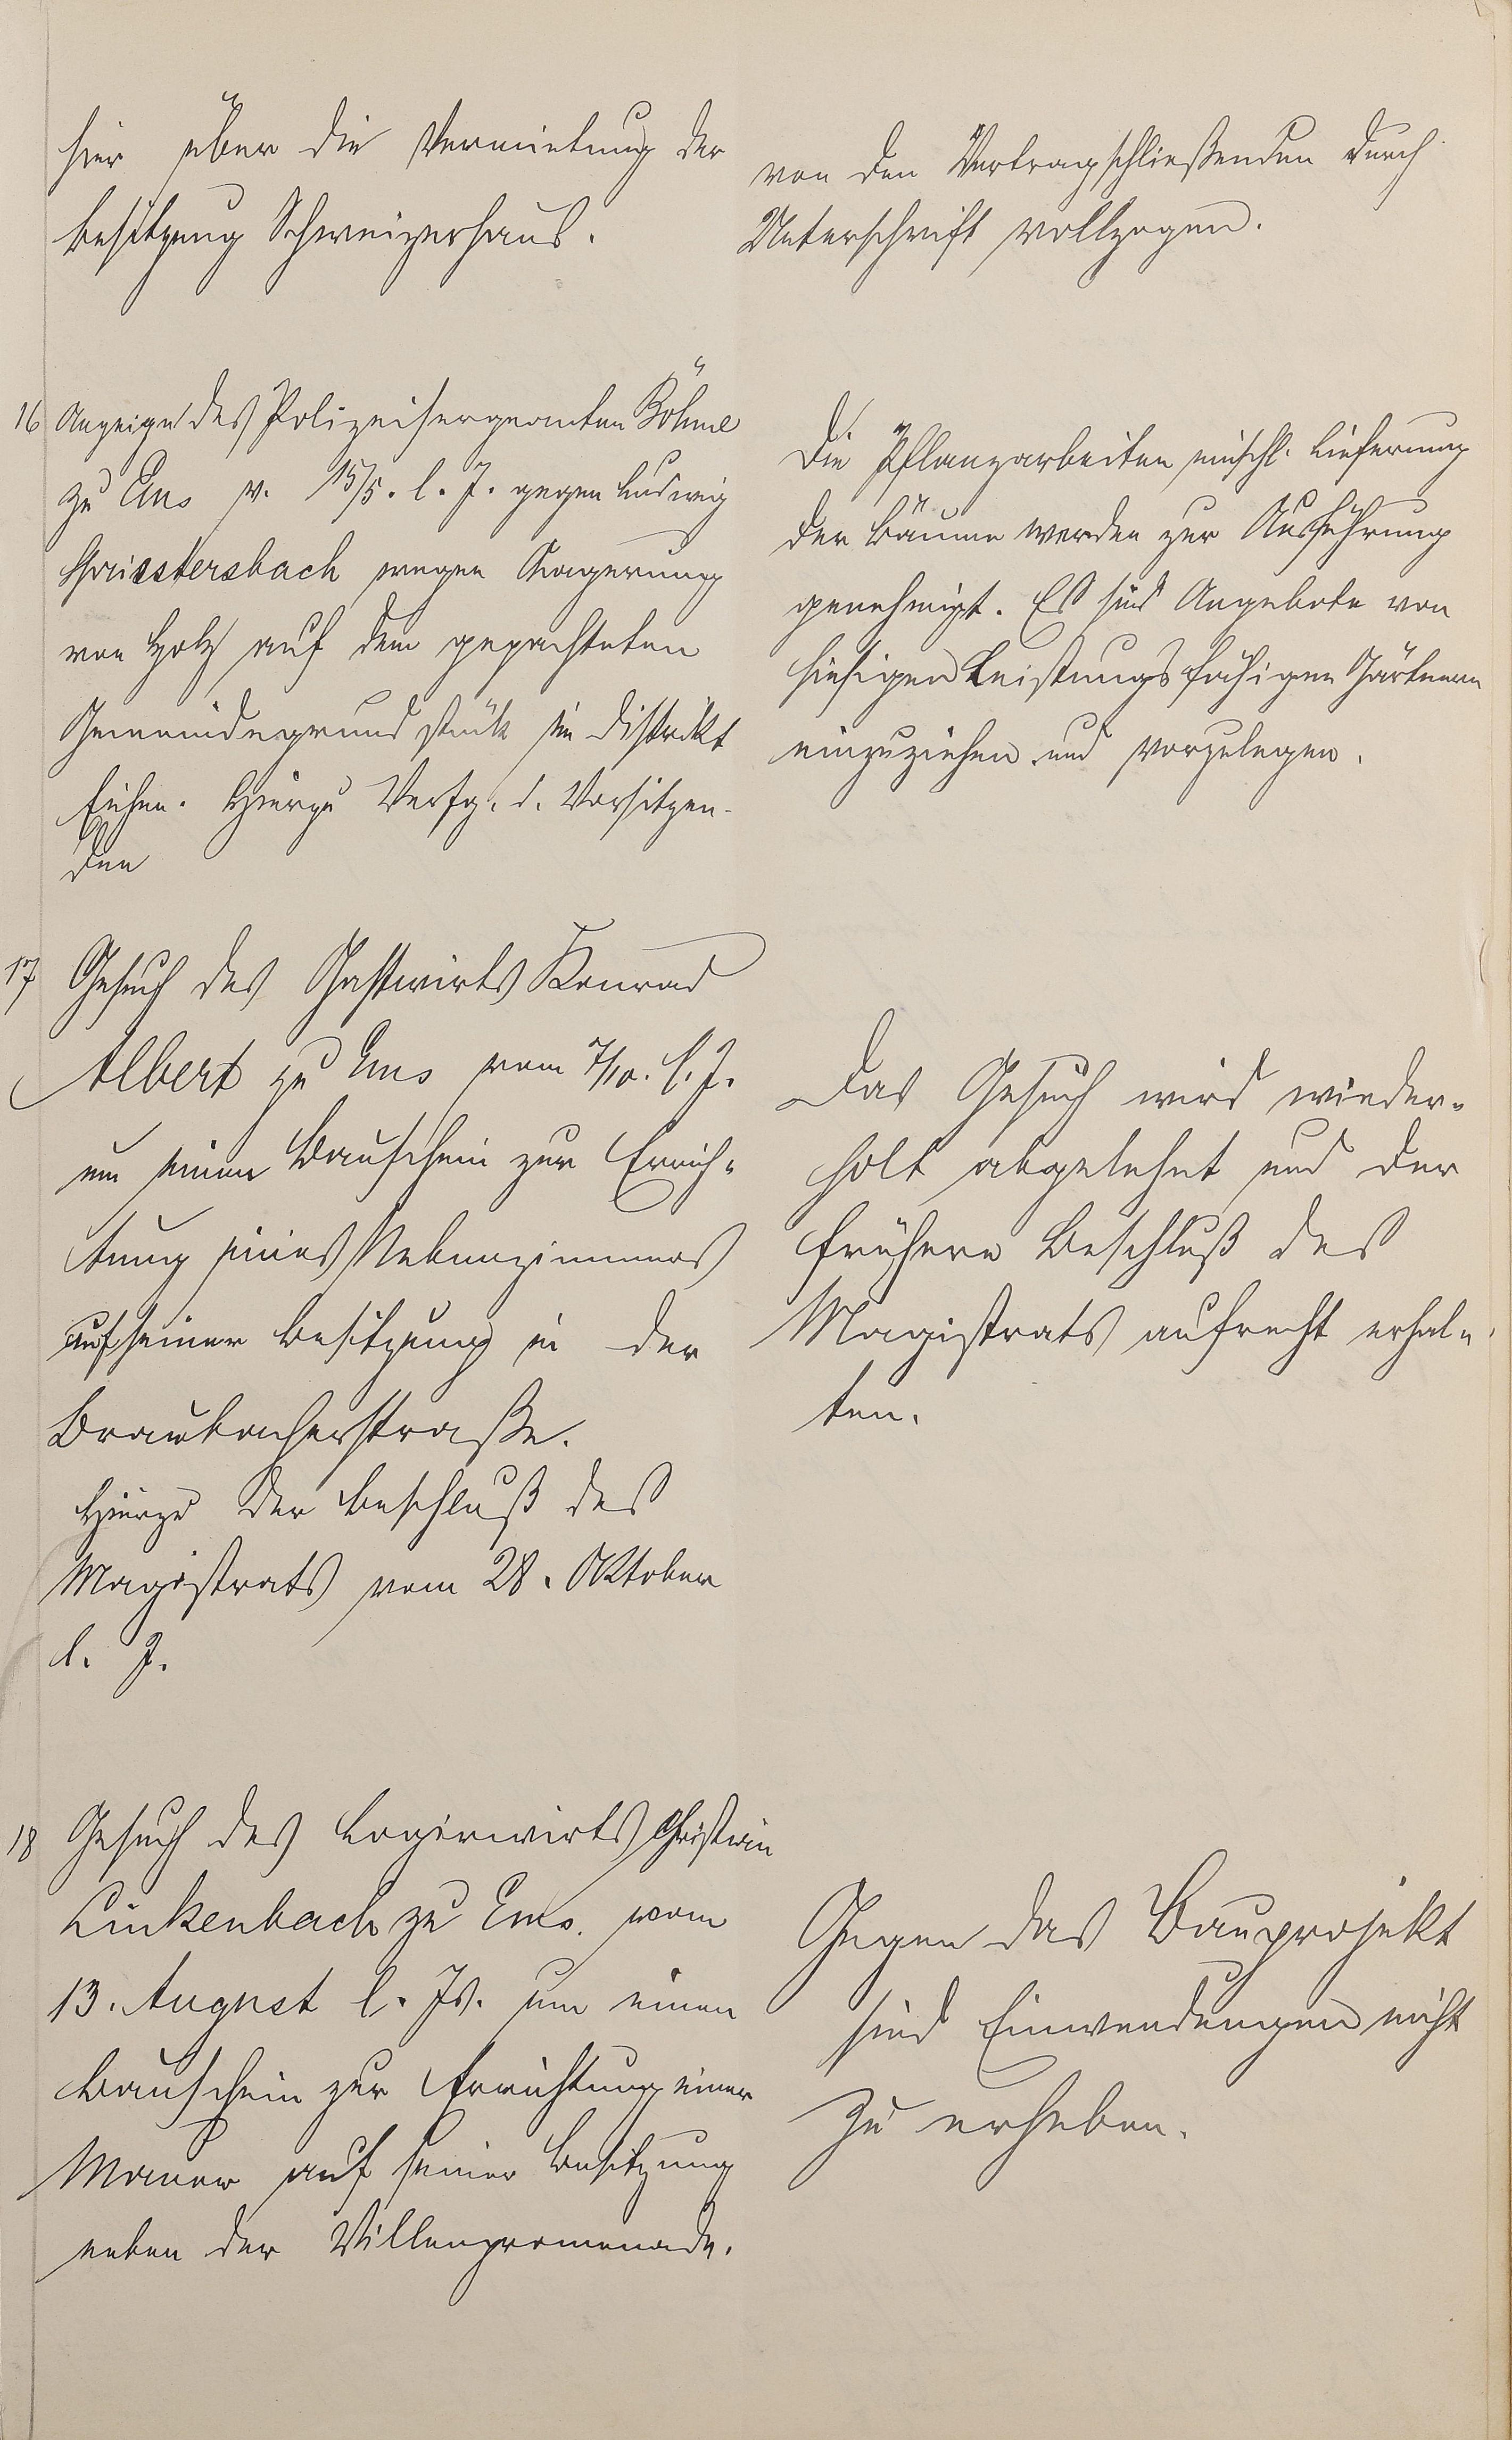 hier über die Vermietung der
Besitzung Schweizerhaus.
von den Vertragschließenden durch
Unterschrift vollzogen.
16 Anzeige des Polizeisergeanten Böhme
zu Ems v. 15/5. l. J. gegen Ludwig
wegen Lagerung
von Holz auf dem gepachteten
Gemeindegrundstück im Distrikt
Eichen. Hierzu Verfg. d. Vorsitzen-
den
Die Pflanzarbeiten einschl. Lieferung
der Bäume werden zur Ausführung
genehmigt. Es sind Angebote von
hiesigen Leistungsfähigen Gärtnern
einzuziehen und vorzulegen.
17 Gesuch des Gastwirts Konrad
Albert zu Ems vom 7/10. l. J.
um einen Bauschein zur Errich-
tung eines Nebenzimmers
auf seiner Besitzung in der
Braubacherstraße.
Hierzu der Beschluß des
Magistrats vom 28. Oktober
l. J.
Das Gesuch wird wieder-
holt abgelehnt und der
frühere Beschluß des
Magistrats aufrecht erhal-
ten.
18 Gesuch des Logirwirts Christian
Linkenbach zu Ems. vom
13. August l. Js. um einen
Bauschein zur Errichtung einer
Mauer auf seiner Besitzung
neben der Villenpromenade.
Gegen das Bauprojekt
sind Einwendungen nicht
zu erheben.